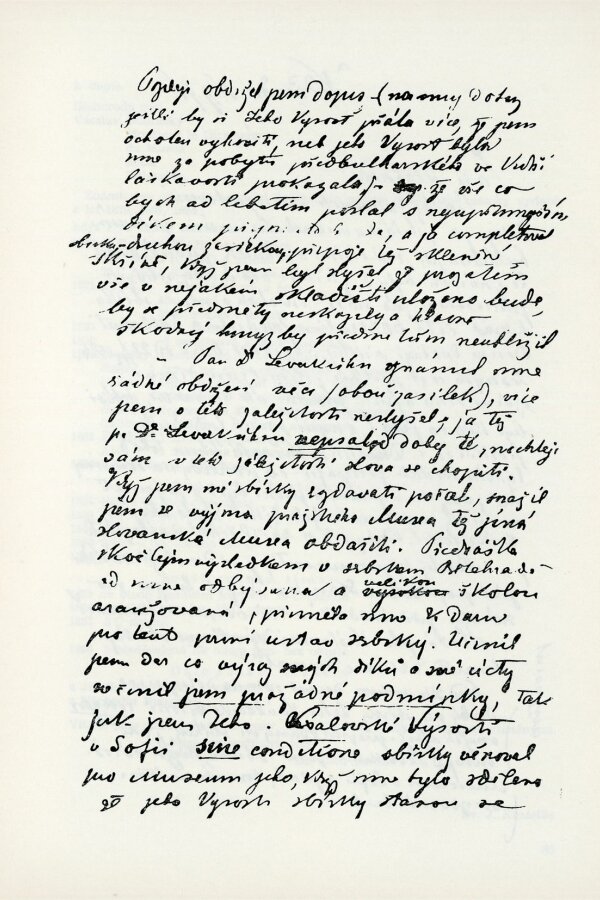 Později obdržel jsem dopis (na můj dotaz
jestli by si Jeho Výsost přála více, že jsem
ochoten vyhověti, neb jeho Výsost byla
mne za pobytu předbulharského ve Vídni
laskavosti prokazala) že vše co
bych ad libitum poslal s nejupřímnějším
dikem a já completoval
sbírku druhou zásilkou, připoje též sklenné
skříně, když jsem byl slyšel že prozatím
vše v nějakém skladišti uloženo bude,
by se předměty neskazily a hlavně
škodný hmyz by předmětům neublížil
– Pan Dr Leverkühn oznámil mne
řádné obdržení věcí (obou zásilek), více
jsem o této záležitosti neslyšel, já též
p. Dr. Leverkühnu nepsal od doby té, nechtěje
sám v této záležitosti slova se chopiti.
Když jsem mé sbírky rozdávati počal, mínil
jsem ze vyjma pražského Musea též jiná
slovanská Musea obdařiti. Předrážka
skočilým výsledkem v srbském Bělehradě
od mne odbývaná a velikou školou
aranžovaná, přiměla mne k daru
pro tento první ústav sbírky. Učinil
jsem dar co výraz mých díků a mé úcty
nečinil jsem pražádné podmínky, tak
jak jsem Jeho Královské Výsosti
v Sofii sine conditione sbírky věnoval
pro Museum jeho, když mne bylo sděleno
že jeho Výsosti sbírky stanou se